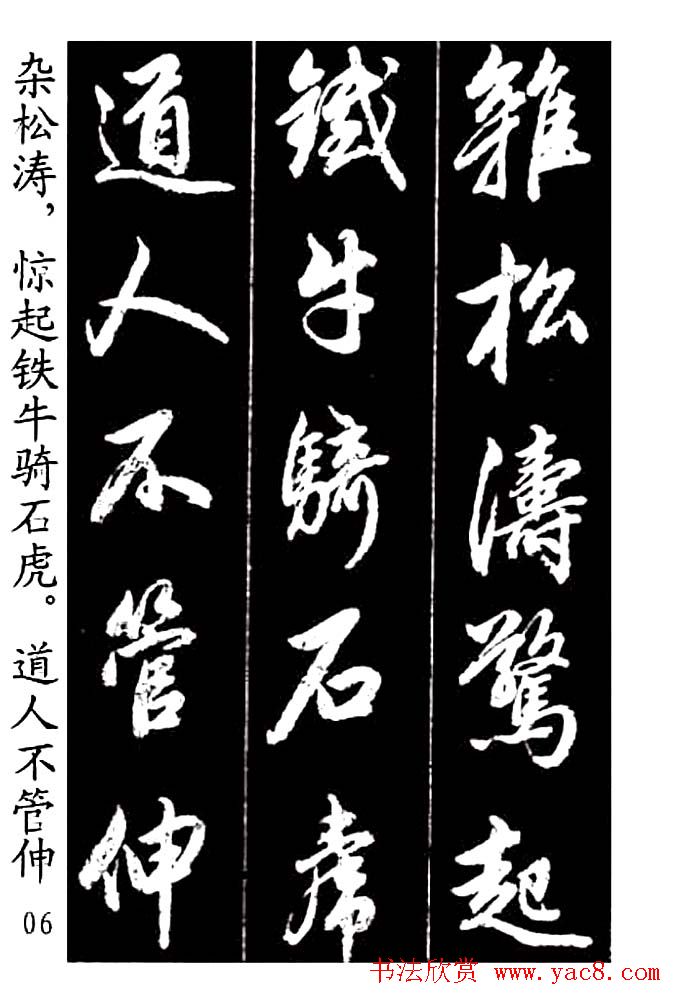 雜松濤驚起
鐵牛騎石虎
道人不管伸
杂松涛，惊起铁牛骑石虎。道人不管伸
06
书法欣赏 www.yac8.com